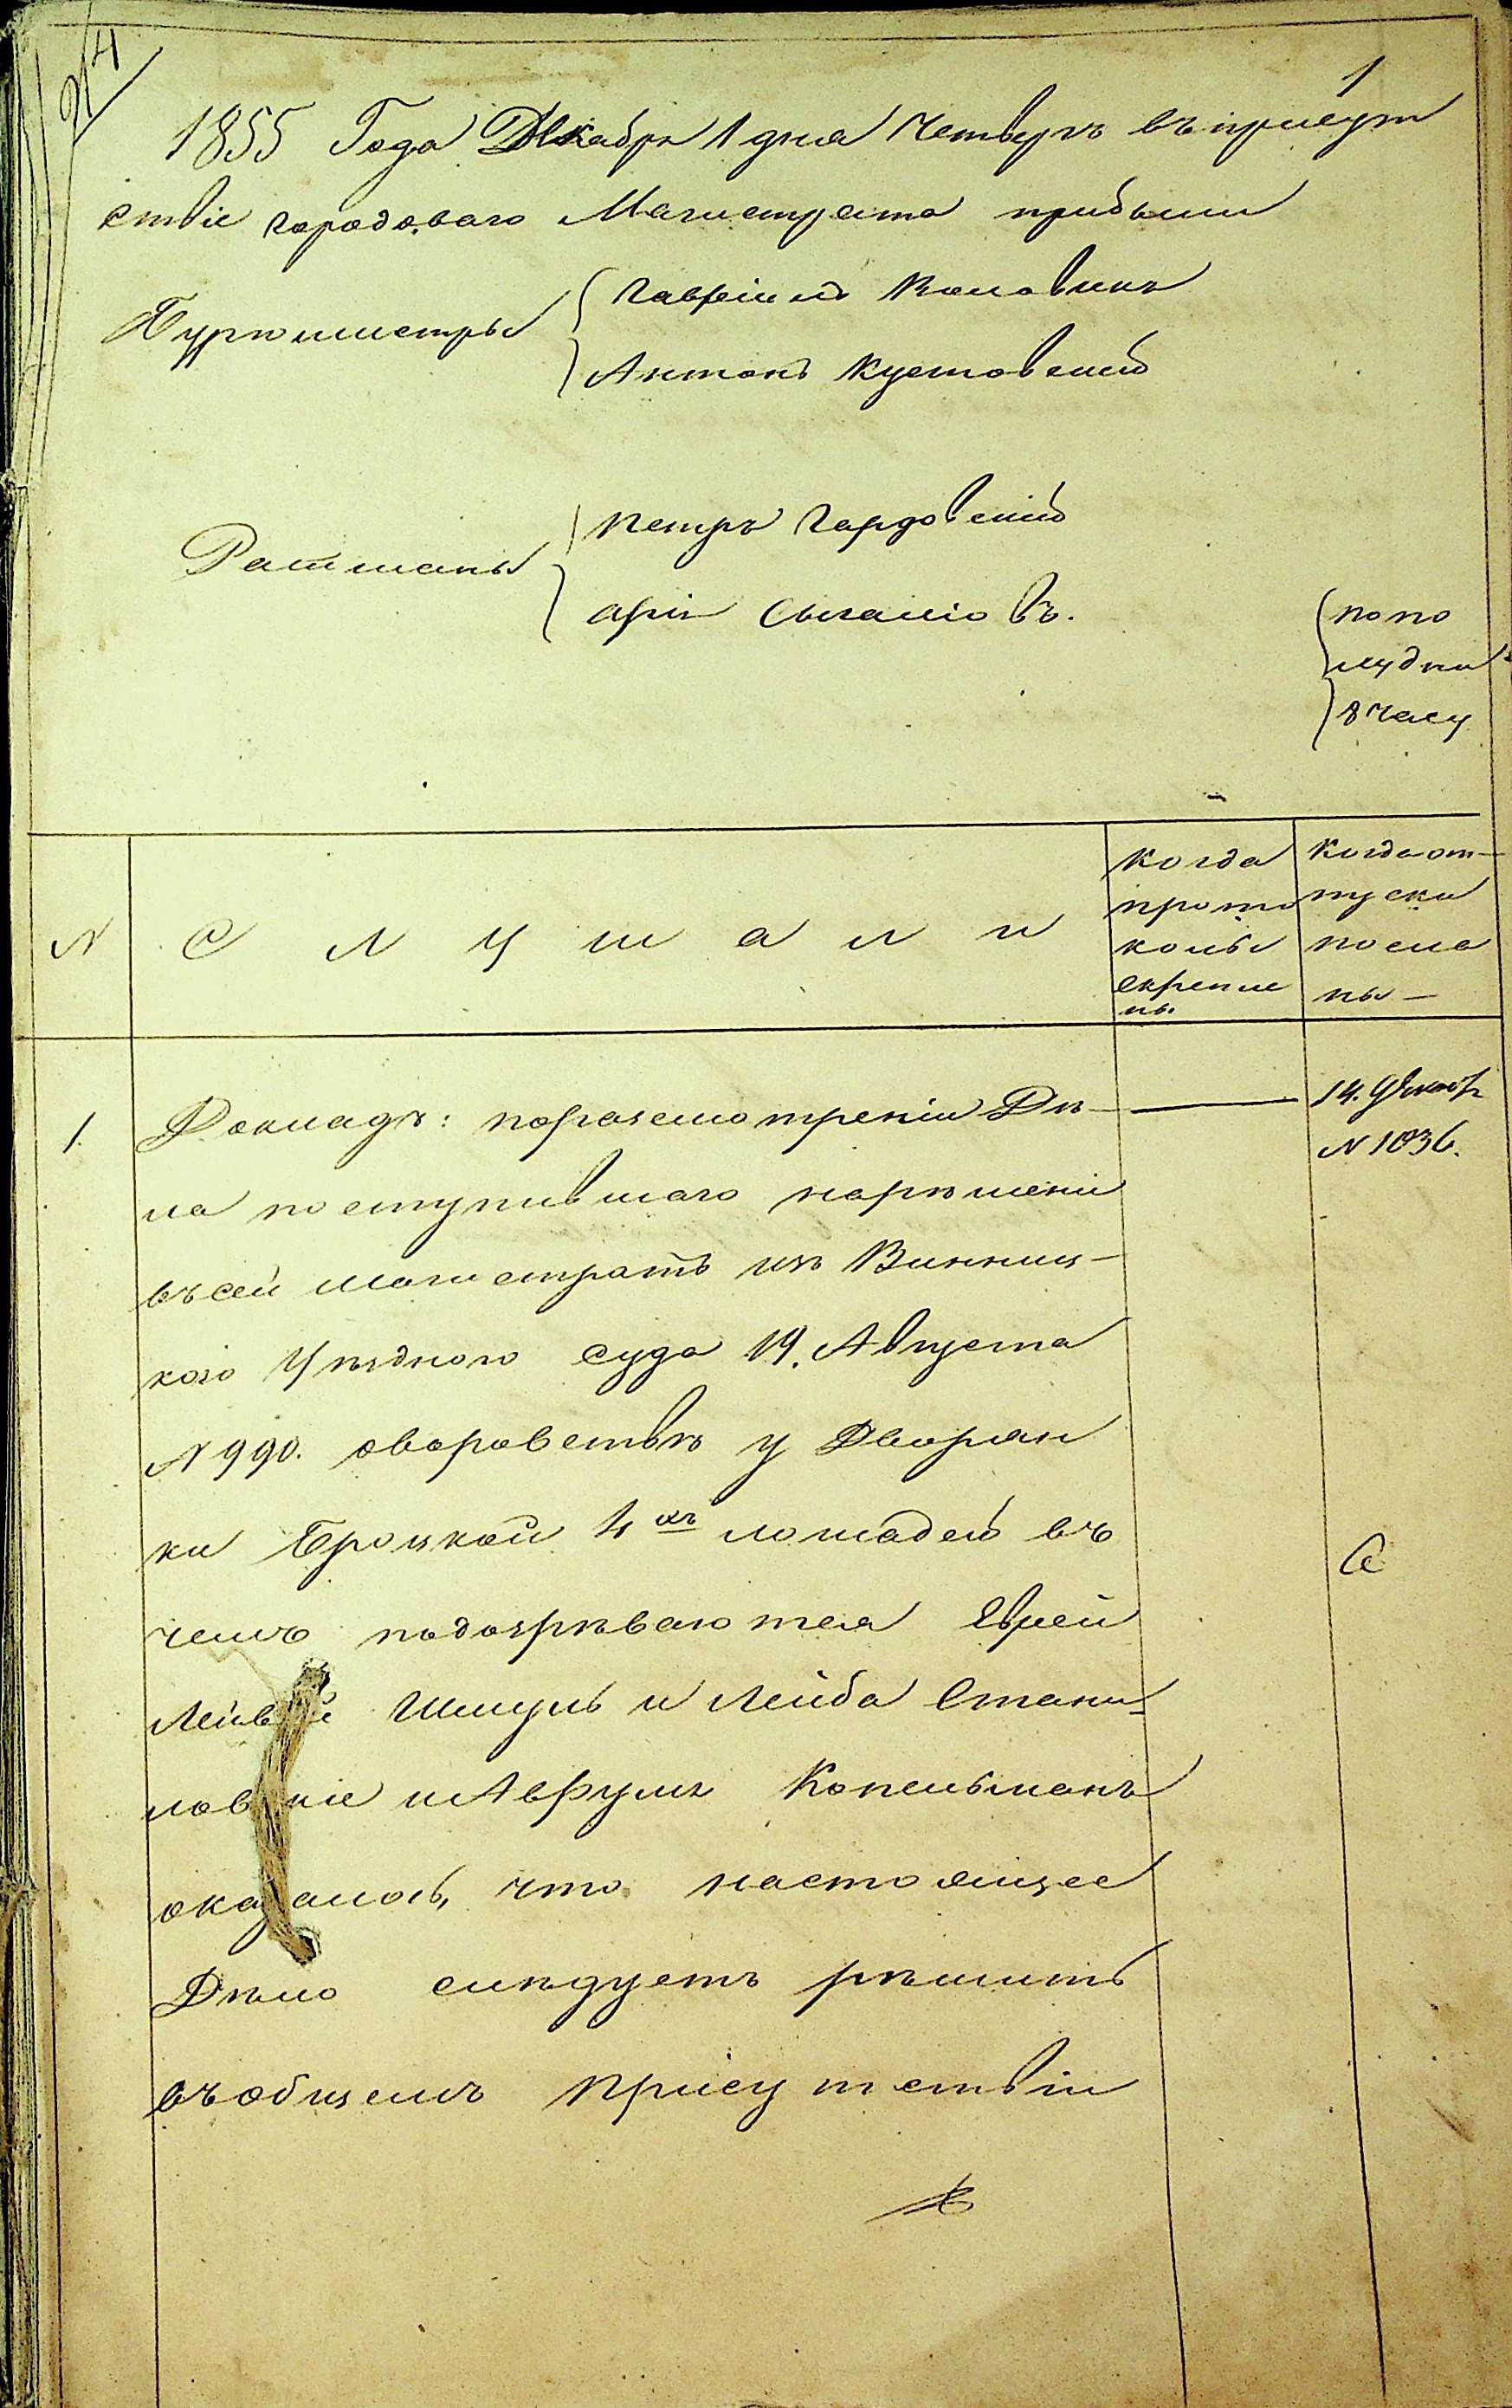 1
1855 Года Декабря 1 дня Четверъ въ присут
ствіе городоваго Магистрата прибыли
Бургомистры
Гавріилъ
Антонъ Кустовскій
Ратманы
Петръ Гардовскій
по по
лудни
8 часу
N
С л у ш а л и
когда
прото
колы
скрепле
ны.
когда от-
пуски
посла
ны -
1.
Докладъ: поразсмотреніи Дѣ-
ла поступившаго нарѣшеніе
въсей магистратъ изъ Винниц-
кого Уѣзднаго суда 19. Августа
N 990. оворовствѣ у Дворян
ки Броцкой 4хъ лошадей въ
чемъ подозрѣваются Евреи
Шмуль и Лейба Стани-
ловскіе и Аврумъ Копельманъ
оказалось, что настоящее
Дѣло слѣдуетъ рѣшить
въобщемъ присутствіи
14. Декабр
N 1036.